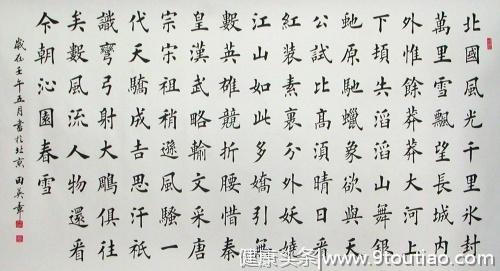 北國風光千里冰封
萬里雪飄望長城内
外惟餘莽莽大河上
下頓失滔滔山舞銀
蛇原馳蠟象欲與天
公試比高須晴日看
紅装素裹分外妖嬈
江山如此多嬌引無
數英雄競折腰惜秦
皇漢武略輸文采唐
宗宋祖稍遜風騷一
代天驕成吉思汗祇
識彎弓射大鵰俱往
矣數風流人物還看
今朝沁園春雪
歲在壬午五月書於北京 田英章
健康头条|www.9toutiao.com